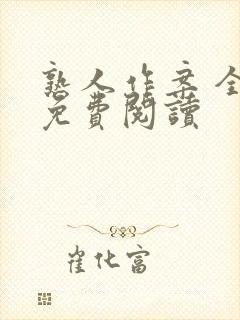 熟人作案全
免費閱讀
崔化富